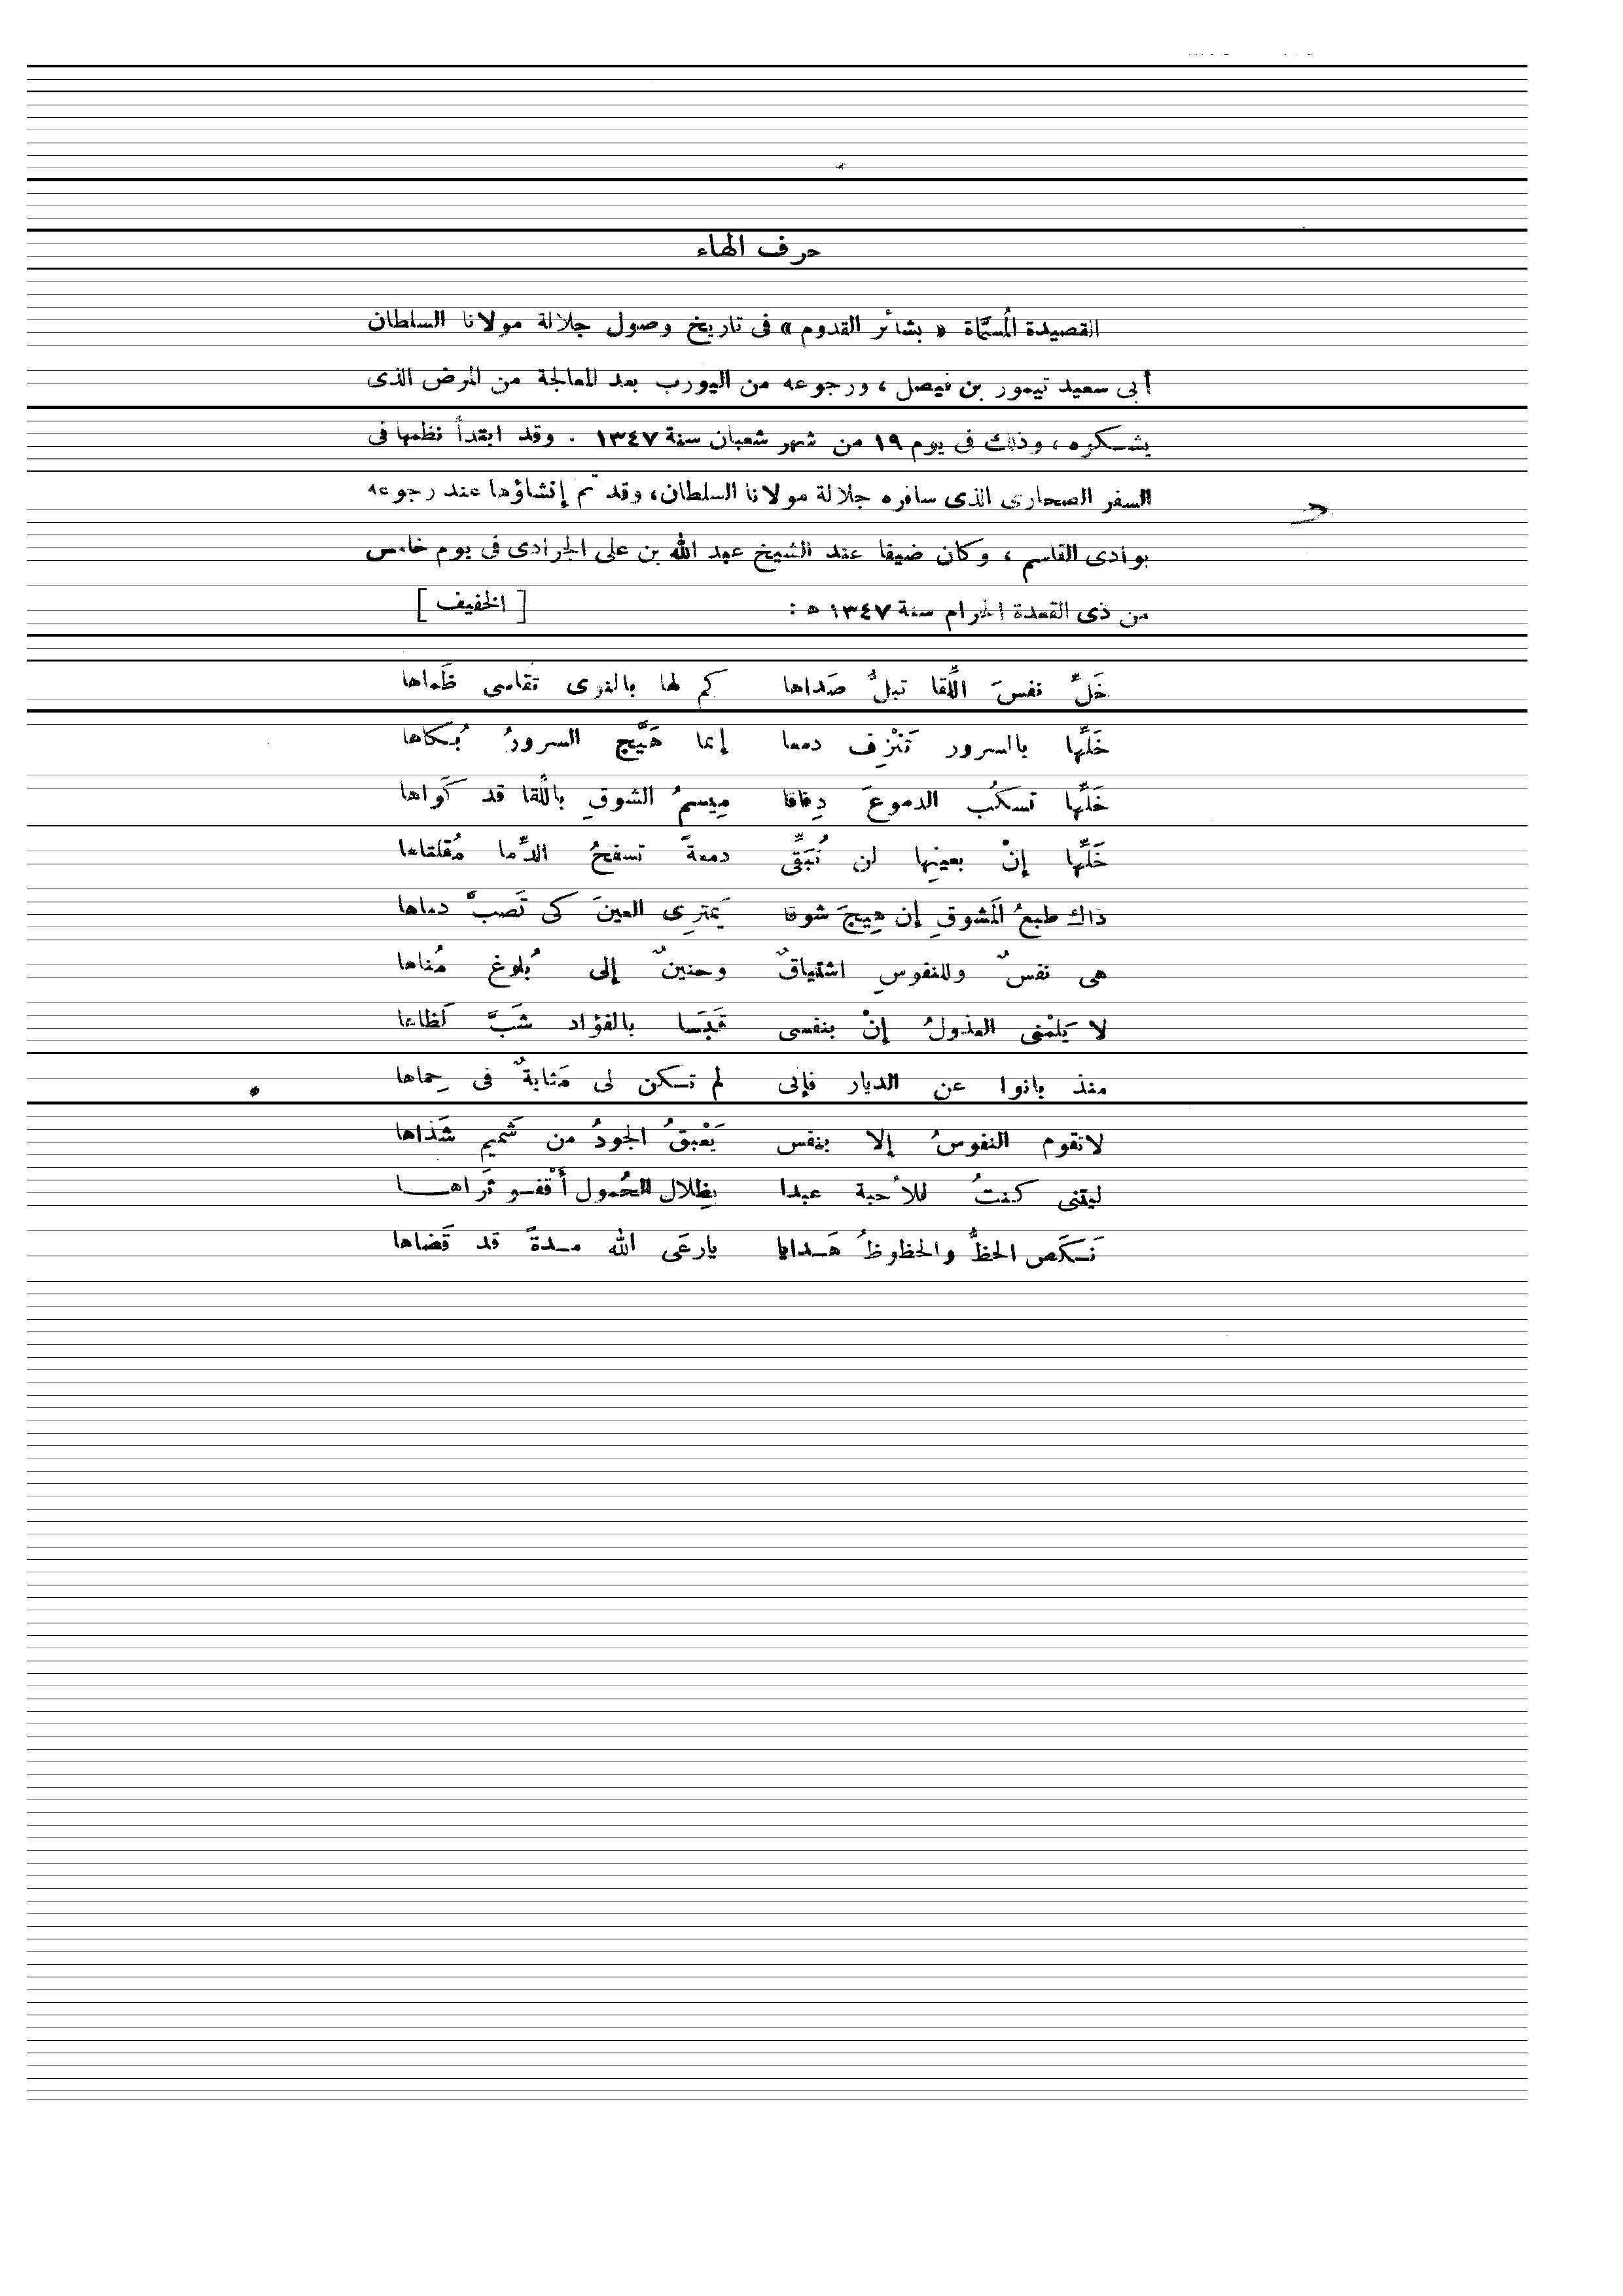 حرف الهاء
القصيدة المُسمَّاة « بشائر القدوم » فى تاريخ وصول جلالة مولانا السلطان
أبى سعيد تيمور بن فيصل ، ورجوعه من اليورب بعد المعالجة من المرض الذى
يشكره ، وذلك فى يوم ١٩ من شهر شعبان سنة ١٣٤٧ . وقد ابتدأ نظمها فى
السفر الصحارى الذى سافره جلالة مولانا السلطان، وقد تم إنشاؤها عند رجوعه
بوادى القاسم ، وكان ضيفا عند الشيخ عبد الله بن على الجرادى فى يوم خامس
من ذى القعدة الحرام سنة ١٣٤٧ ه : [ الخفيف ]
خَلِّ نفسَ اللِّقا تبلُّ صَداها كم لها بالنوى تقاسى ظَماها
خَلِّها بالسرور تَنْزِف دمعا إنما هَيَّج السرورُ بُكاها
خَلِّها تسكُب الدموعَ دِفاقا مِيسمُ الشوقِ باللِّقا قد كَواها
خَلِّها إنْ بعينِها لن تُبَقِّى دمعةً تسفحُ الدِّما مُقلتاها
ذاك طبعُ المَشوقِ إن هِيجَ شوقا يَمترِى العينَ كى تَصبَّ دماها
هى نفسٌ وللنفوسِ اشتياقٌ وحنينٌ إلى بُلوغ مُناها
لا يَلمْنى العذولُ إنْ بنفسى قَبَسا بالفؤاد شَبَّ لَظاها
منذ بانوا عن الديار فإنى لم تكن لى مَثابةٌ فى حِماها
لاتقوم النفوسُ إلا بنفس يَعْبقُ الجودُ من شَميم شَذاها
ليتنى كنتُ للأحبة عبدا بظِلال الحُمول أَقْفو ثَراها
نَكَص الحظُّ والحظوظُ هَدايا يارعَى الله مدةً قد قَضاها